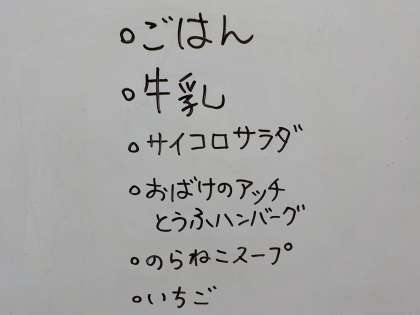 ○ごはん
○牛乳
○サイコロサラダ
○おばけのアッチ
とうふハンバーグ
○のらねこスープ
○いちご